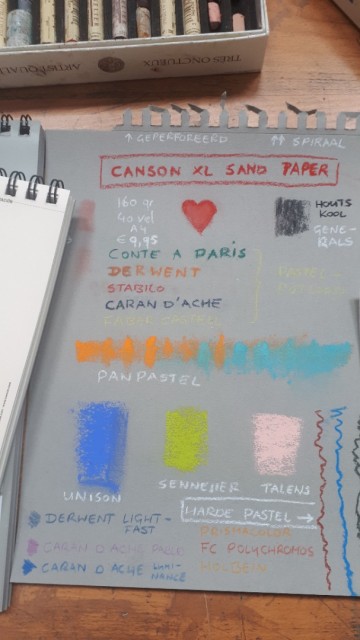 TRÈS ONCTUEUX
ARTIST QUALI
↑ GEPERFOREERD ↑↑ SPIRAAL
CANSON XL SAND PAPER
160 gr
40 vel
A4
€ 9,95
HOUTS
KOOL
GENE-
RALS
CONTE A PARIS
DERWENT
STABILO
CARAN D'ACHE
FABER CASTELL
PASTEL-
PANPASTEL
UNISON
SENNELIER
TALENS
HARDE PASTEL →
DERWENT LIGHT-
FAST
CARAN D'ACHE PABLO
CARAN D'ACHE LUMI-
NANCE
PRISMACOLOR
FC POLYCHROMOS
HOLBEIN